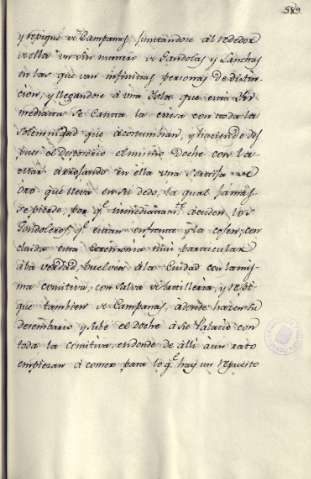 589
y repique de Campanas, juntandose al rededor
de ella un sin numero de Gondolas y Lanchas
en las que van infinitas personas de distin
cion, y llegandose à una Isla que està In
mediata se canta la entra con toda la
solemnidad que acostumbran, y haciendo des
pues el desposorio el mismo Doche con la
mar arrojando en ella una sortija de
oro que lleva en su dedo, la qual jamas
se pierde, por q.e inmediatam.te acuden los
Gondoleros q.e estan enfrente y la cojen; con
cluida esta ceremonia mui particular
à la verdad, buelven à la Ciudad con la mis
ma comitiva, con salva de Artilleria, y repi
que tambien de Campanas, adonde hacen su
desembarco y sube el Doche à su Palacio con
toda la comitiva, en donde de alli à un rato
empiezan à comer para lo q.e hay un repuesto